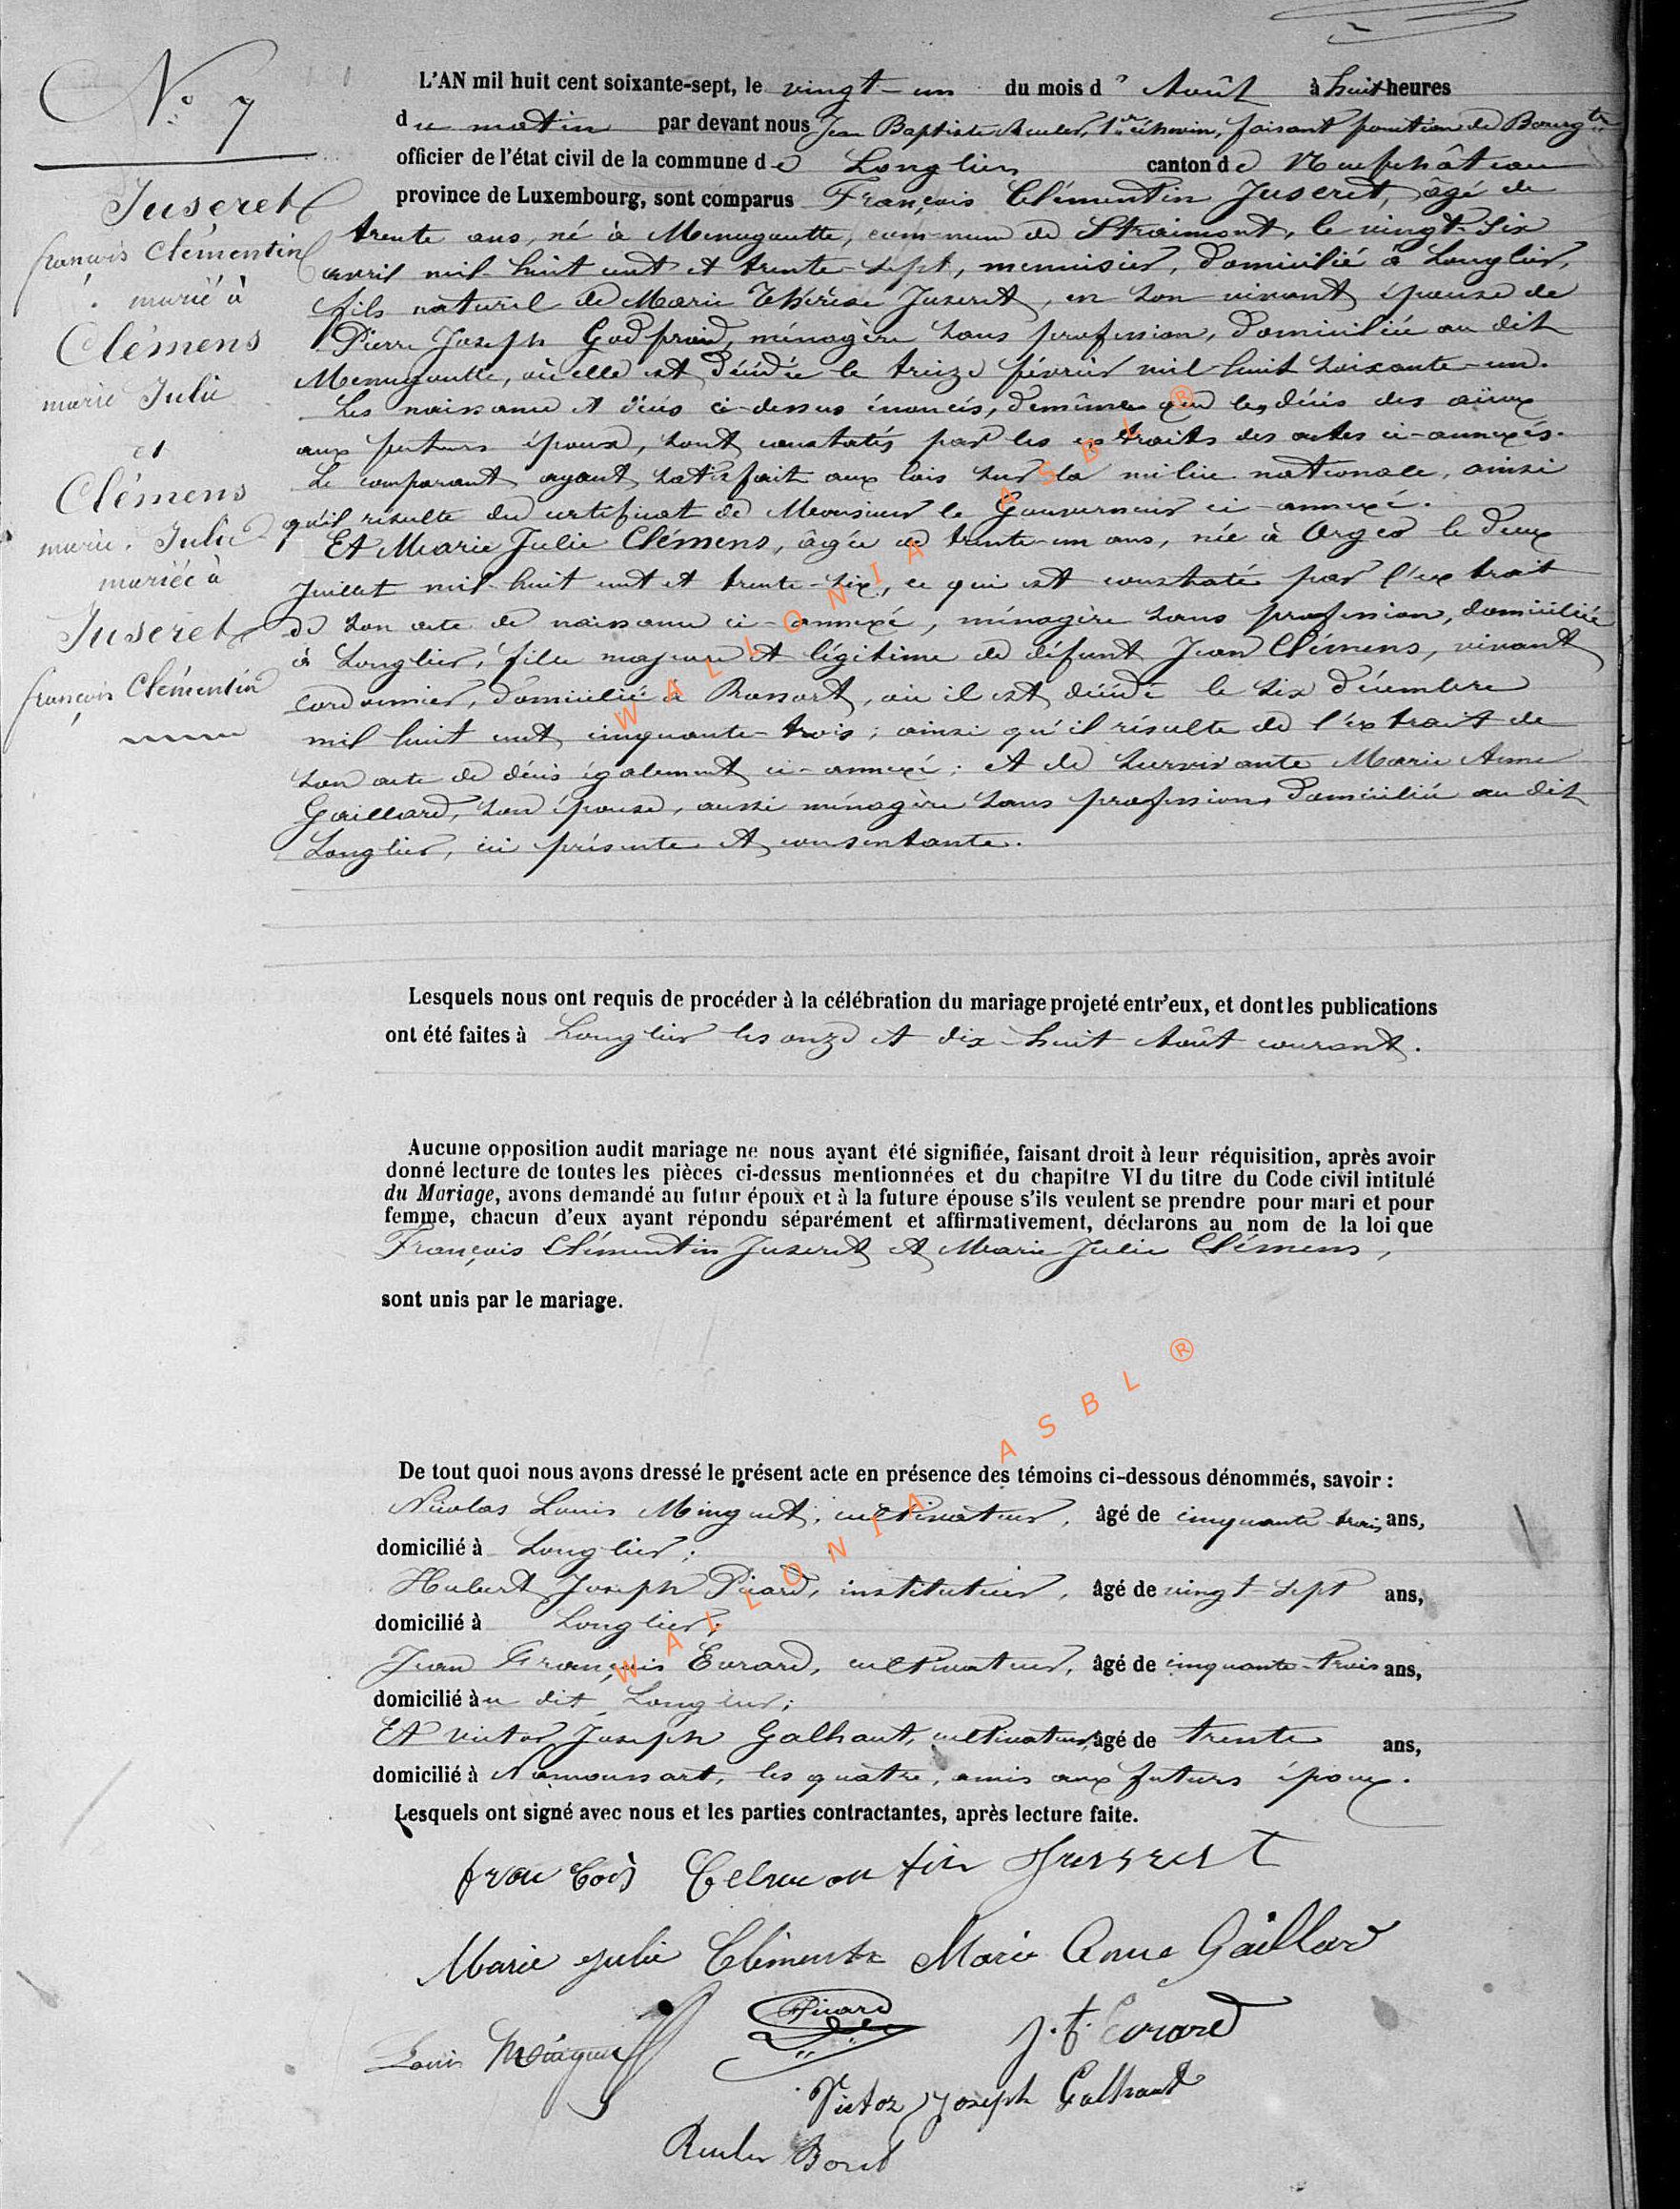 N° 7
Juseret
françois Clémentin
marié à
Clémens
marie Julie
et
Clémens
marie Julie
mariée à
Juseret
françois Clémentin
L'AN mil huit cent soixante-sept, le vingt-un du mois d' Août à huit heures
du matin par devant nous Jean Baptiste Reuler, 1er échevin, faisant fonction de Bourgtre
officier de l'état civil de la commune de Longlier canton de Neufchâteau
province de Luxembourg, sont comparus François Clémentin Juseret, âgé de
trente ans, né à Menugoutte, commune de Straimont, le vingt-six
avril mil huit cent et trente-sept, menuisier, domicilié à Longlier,
fils naturel de Marie Thérèse Juseret, en son vivant épouse de
Pierre Joseph Godfroid, ménagère sans profession, domiciliée au dit
Menugoutte, où elle est décédée le treize février mil-huit soixante-un.
Les naissance et décès ci-dessus énoncés, demême que les décès des aïeux
aux futurs époux, sont constatés par les extraits des actes ci-annexés.
Le comparant ayant satisfait aux lois sur la milice nationale, ainsi
qu'il résulte du certificat de Monsieur le Gouverneur ci-annexé.
Et Marie Julie Clémens, âgée de trente-un ans, née à Orgeo le deux
Juillet mil huit cent et trente-six, ce qui est constaté par l'extrait
de son acte de naissance ci-annexé, ménagère sans profession, domiciliée
à Longlier, fille majeure et légitime de défunt Jean Clémens, vivant
cordonnier, domicilié à Rossart, où il est décédé le six décembre
mil huit cent cinquante-trois; ainsi qu'il résulte de l'extrait de
son acte de décès également ci-annexé; et de survivante Marie Anne
Gaillard, son épouse, aussi ménagère sans profession, domiciliée au dit
Longlier, ici présente et consentante.
Lesquels nous ont requis de procéder à la célébration du mariage projeté entr'eux, et dont les publications
ont été faites à Longlier les onze et dix-huit Août courant.
Aucune opposition audit mariage ne nous ayant été signifiée, faisant droit à leur réquisition, après avoir
donné lecture de toutes les pièces ci-dessus mentionnées et du chapitre VI du titre du Code civil intitulé
du Mariage, avons demandé au futur époux et à la future épouse s'ils veulent se prendre pour mari et pour
femme, chacun d'eux ayant répondu séparément et affirmativement, déclarons au nom de la loi que
François Clémentin Juseret et Marie Julie Clémens,
sont unis par le mariage.
De tout quoi nous avons dressé le présent acte en présence des témoins ci-dessous dénommés, savoir :
Nicolas Louis Minguet, cultivateur, âgé de cinquante trois ans,
domicilié à Longlier;
Hubert Joseph Picard, instituteur, âgé de vingt-sept ans,
domicilié à Longlier;
Jean François Evrard, cultivateur, âgé de cinquante-trois ans,
domicilié àu dit Longlier;
Et Victor Joseph Galhaut, cultivateur, âgé de trente ans,
domicilié à Namoussart, les quatre, amis aux futurs époux.
Lesquels ont signé avec nous et les parties contractantes, après lecture faite.
Marie Julie Clémens Marie Anne Gaillard
Louis Minguet Picard J. f. Evrard
Victor Joseph Galhaut
WALLONIA ASBL ®
WALLONIA ASBL ®